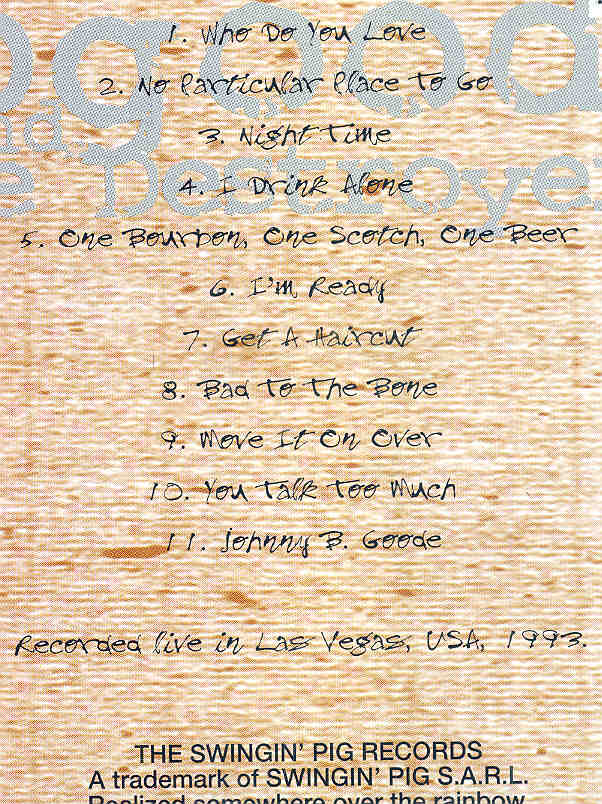 ogood
nd
e Destroyer
1. Who Do You Love
2. No Particular Place To Go
3. Night Time
4. I Drink Alone
5. One Bourbon, One Scotch, One Beer
6. I'm Ready
7. Get A Haircut
8. Bad To The Bone
9. Move It On Over
10. You Talk Too Much
11. Johnny B. Goode
Recorded live in Las Vegas, USA, 1993.
THE SWINGIN' PIG RECORDS
A trademark of SWINGIN' PIG S.A.R.L.
Realized somewhere over the rainbow